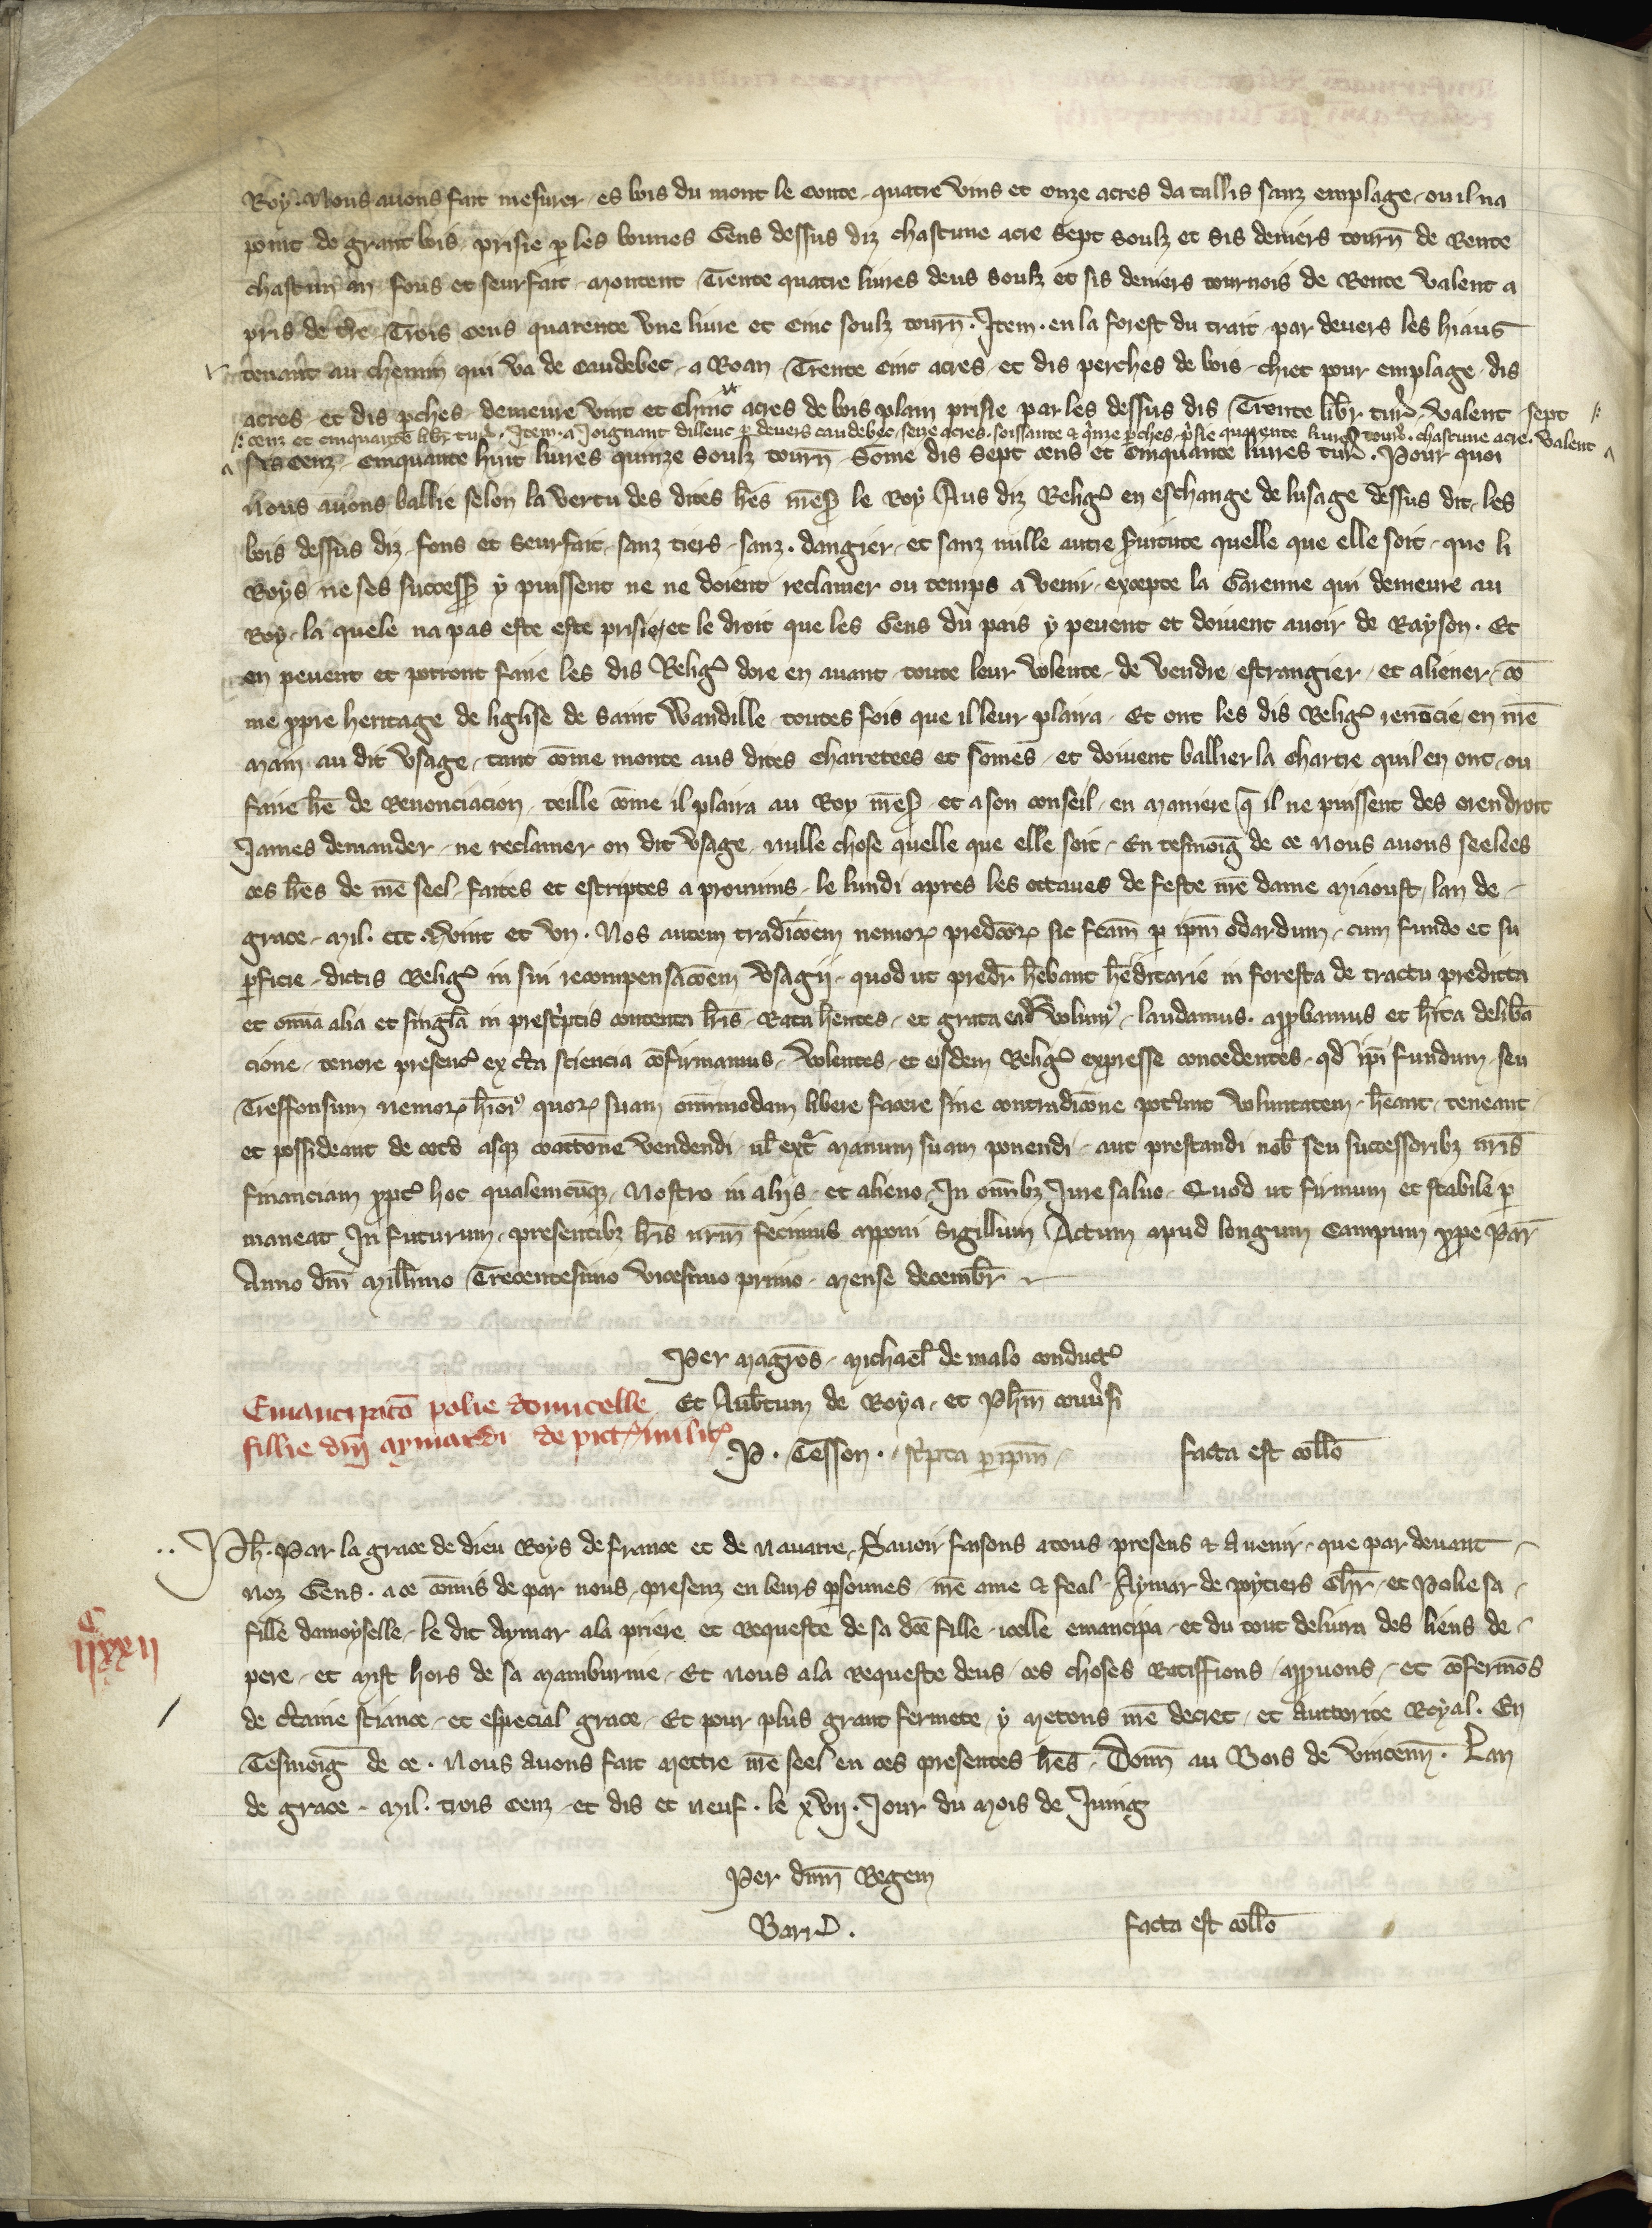 Roy. Nous auons fait mesurer es bois du mont le conte quatre vins et onze acres da tallis sanz emplage ou il na
point de grant bois prisie p les bonnes Gens dessus diz chascune acre sept soulz et sis deniers tourn de Rente
chascun an fons et seurfait montent Trente quatre liures deus soulz et sis deniers tournois de Rente valent a
pris de Trois cens quarente vne liure et cinc soulz tourn. Item. en la forest du trait par deuers les hiaus
tenant au chemin qui va de caudebec a Roan Trente cinc acres et dis perches de bois chiet pour emplage dis
acres et dis pches demeure vint et chinc acres de bois plain prisie par les dessus dis Trente libr tur valent sept
cenz et cinquante libr tur. Item. a Joignant dilleuc p deuers caudebec seze acres. soissante & qinze pches prisie quarente liures tour. chascune acre. valent
sis cenz cinquante huit liures quinze soulz tourn Some dis sept cens et cinquante liures tur. Pour quoi
nous auons ballie selon la vertu des dites les mess le Roy Aus diz Relig en eschange de lusage dessus dit les
bois dessus diz fons et seurfait sanz tiers sanz. dangier et sanz nulle autre seruitute quelle que elle soit que li
Roys ne ses success y puissent ne ne doient reclamer ou temps a venir excepte la Garenne qui demeure au
Roy la quele na pas este este prisie et le droit que les Gens du pais y peuent et doiuent auoir de Rayson. Et
en peuent et porront faire les dis Relig dore en auant toute leur volente de vendre estrangier et aliener co
me ppre heritage de liglise de saint Wandille toutes fois que il leur plaira Et ont les dis Relig renocie en nre
main au dit vsage tant come monte aus dites charretees et somes et doiuent ballier la chartre quil en ont ou
faire lre de Renonciacion teille come il plaira au Roy mess et a son conseil en maniere q il ne puissent des orendroit
James demander ne reclamer ou dit vsage nulle chose quelle que elle soit En tesmoig de ce nous auons seelees
ces lres de nre seel faites et escriptes a prouuins le lundi apres les octaues de feste nre dame miaoust lan de
grace mil. ccc. vint et vn. Nos autem tradicoem nemor predcor sic fcam p ipm odardum cum fundo et su
pficie dictis Relig in sui recompensacoem vsagii quod ut predr hebant heditarie in foresta de tractu predicta
et omia alia et singla in prescptis contenta lris Rata hentes et grata ead volum laudamus. appbamus et hita delib
cione tenore presenc ex cta sciencia cofirmamus Volentes et eisdem Relig expresse concedentes qd ipi fundum seu
Treffonsum nemor hmoi quor suam omimodam libere facere sine contradicone potunt voluntatem heant teneant
et possideant de cetero absq coactone vendendi ul ext manum suam ponendi aut prestandi nob seu successoribz nris
financiam ppt hoc qualemcuq Nostro in aliis et alieno In omibz Jure saluo Quod ut firmum et stabile p
maneat In futurum presentibz lris nrm fecimus apponi Sigillum Actum apud longum Campum ppe Par
Anno dni millimo Trecentesimo vicesimo primo mense decembr
Per magros michael de malo conduct
Et Aubtum de Roya et Phm conusi
P. Tesson. scpta p ipm
facta est collo
Emancipato polie domicelle
fillie dni aymardi de pict milit
Ph. Par la grace de dieu Roys de france et de nauarre Sauoir faisons a tous presens & Auenir que par deuant
noz Gens. a ce comis de par nous presenz en leurs psonnes nre ame & feal Aymar de poytiers Chr et Polie sa
fille damoyselle le dit Aymar a la priere et Requeste de sa dce fille icelle emancipa et du tout deliura des liens de
pere et mist hors de sa mamburnie Et nous a la Requeste deus ces choses Ratiffions appuons et cofermos
de ctaine sciance et especial grace Et pour plus grant fermete y metons nre decret et auttorite Royal. En
Tesmoig de ce. Nous auons fait mettre nre seel en ces presentes lres Donn au Bois de vincenn. Lan
de grace mil. trois cenz et dis et neuf. le xvii. Jour du mois de Juing
C
iixxii
Per dnm Regem
Barr.
facta est collo